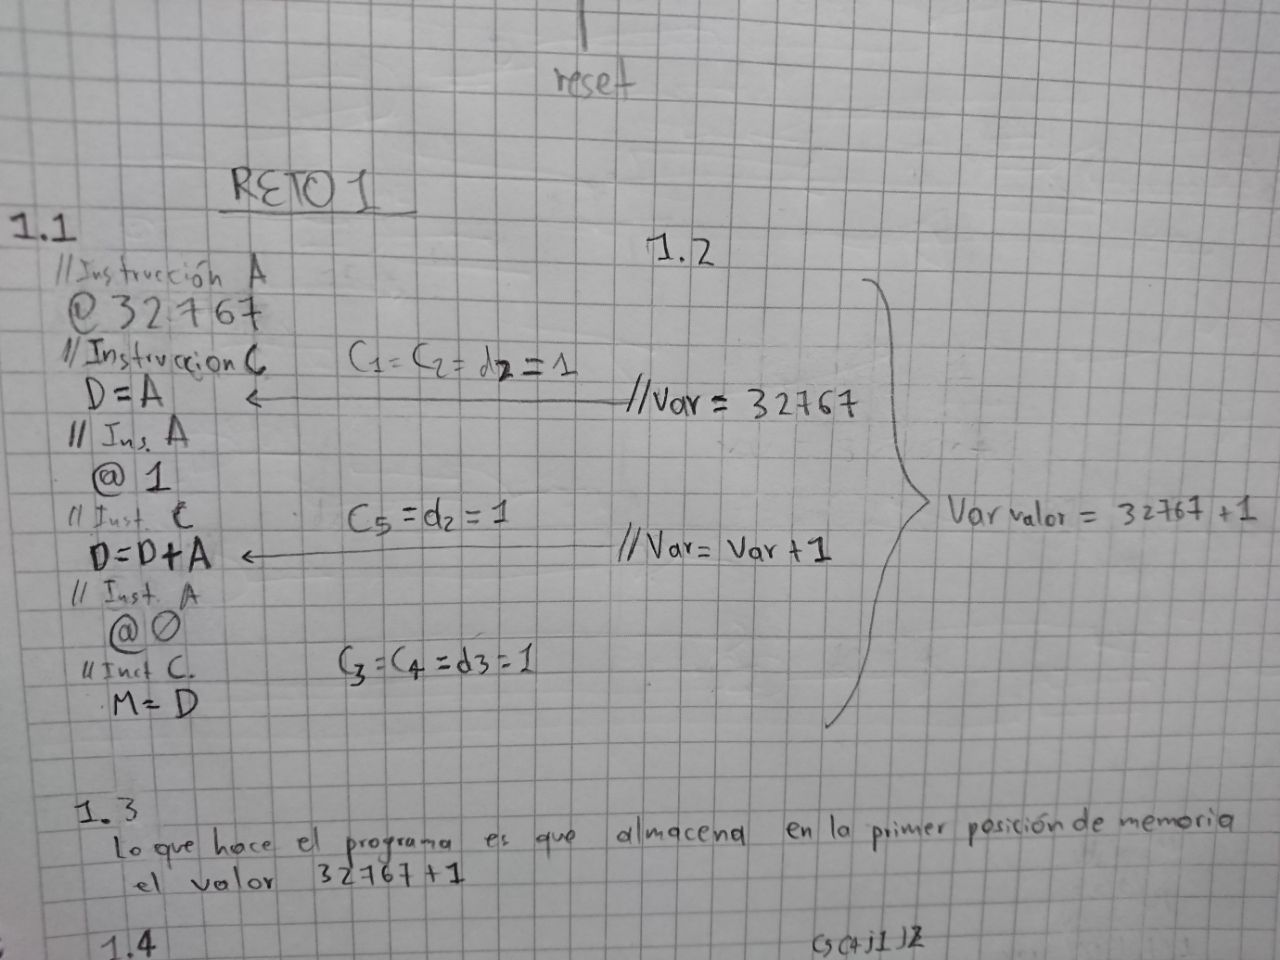 reset
RETO 1
1.1
//Instrucción A
@ 32767
//Instruccion C
D=A
// Ins. A
@ 1
// Inst. C
D=D+A
// Inst. A
@ 0
// Inct C.
M= D
C1= C2= d2=1
C5=d2=1
C3=C4=d3=1
1.2
//Var = 32767
//Var= Var+1
Var valor = 32767+1
1.3
Lo que hace el programa es que almacena en la primer posición de memoria
el valor 32767+1
1.4